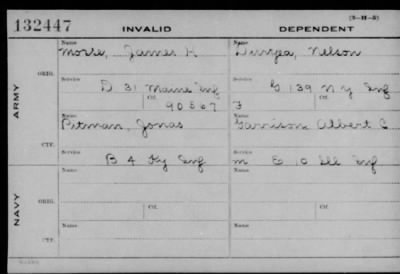 (3-11-5)
132447 INVALID DEPENDENT
Name Name
Morse, James H Nelson
ORIG.
Service Service
D 31 Maine Inf G 139 N Y Inf
Ctf. Ctf.
ARMY
90567
Name Name
Pitman, Jonas Garrison Albert C
CTF.
Service Service
B 4 Ky Inf E 10 Ill Inf
Name Name
ORIG.
Ctf. Ctf.
NAVY
Name Name
CTF.